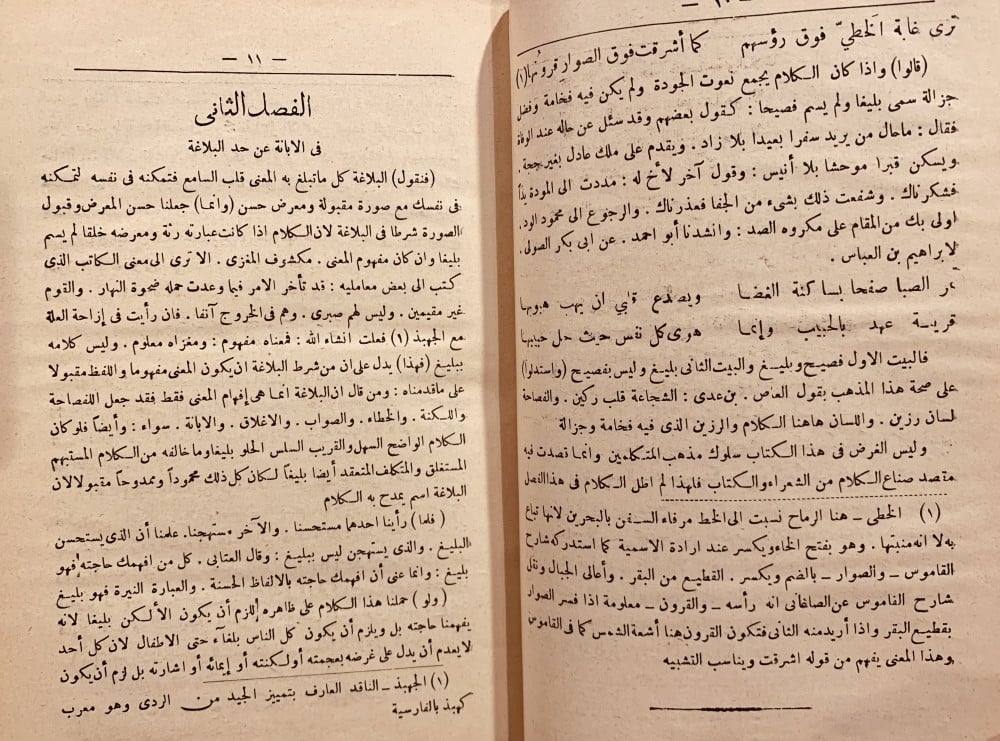 — ١٠ —
ترى غابة الخطيّ فوق رؤسهم كما أشرقت فوق الصوار قرونها (١)
(قالوا) واذا كان الكلام يجمع نعوت الجودة ولم يكن فيه فخامة وفضل
جزالة سمى بليغا ولم يسم فصيحا : كقول بعضهم وقد سئل عن حاله عند الوفاة
فقال : ماحال من يريد سفرا بعيدا بلا زاد . ويقدم على ملك عادل بغير حجة .
ويسكن قبرا موحشا بلا أنيس : وقول آخر لأخ له : مددت الى المودة يدًا
فشكرناك . وشفعت ذلك بشىء من الجفا فعذرناك . والرجوع الى محمود الود .
اولى بك من المقام على مكروه الصد : وانشدنا أبو احمد . عن ابى بكر الصولى .
لابراهيم بن العباس .
تمر الصبا صفحا بساكنة الغضا ويصدع قلبي ان يهب هبوبها
قريبة عهد بالحبيب وإنما هوى كل نفس حيث حل حبيبها
فالبيت الاول فصيح وبليغ والبيت الثانى بليغ وليس بفصيح (واستدلوا)
على صحة هذا المذهب بقول العاص . بن عدى : الشجاعة قلب ركين . والفصاحة
لسان رزين . واللسان هاهنا الكلام والرزين الذى فيه فخامة وجزالة
وليس الغرض فى هذا الكتاب سلوك مذهب المتكلمين وانما قصدت فيه
مقصد صناع الكلام من الشعراء والكتاب فلهذا لم اطل الكلام فى هذا الفصل
(١) الخطى ــ هنا الرماح نسبت الى الخط مرفاء السفن بالبحرين لانها تباع
به لا انه منبتها . وهو بفتح الخاء ويكسر عند ارادة الاسمية كما استدركه شارح
القاموس ــ والصوار ــ بالضم ويكسر . القطيع من البقر . وأعالى الجبال ونقل
شارح القاموس عن الصاغانى انه رأسه ــ والقرون ــ معلومة اذا فسر الصوار
بقطيع البقر واذا أريد منه الثانى فتكون القرون هنا أشعة الشمس كما فى القاموس
وهذا المعنى يفهم من قوله اشرقت ويناسب التشبيه
— ١١ —
الفصل الثانى
فى الابانة عن حد البلاغة
(فنقول) البلاغة كل ماتبلغ به المعنى قلب السامع فتمكنه فى نفسه لتمكنه
فى نفسك مع صورة مقبولة ومعرض حسن (وانما) جعلنا حسن المعرض وقبول
الصورة شرطا فى البلاغة لان الكلام اذا كانت عبارته رثة ومعرضه خلقا لم يسم
بليغا وان كان مفهوم المعنى . مكشوف المغزى . الا ترى الى معنى الكاتب الذى
كتب الى بعض معامليه : قد تأخر الامر فيما وعدت حمله ضحوة النهار . والقوم
غير مقيمين . وليس لهم صبرى . وهم فى الخروج آنفا . فان رأيت فى إزاحة العلة
مع الجهبذ (١) فعلت انشاء الله : فمعناه مفهوم : ومغزاه معلوم . وليس كلامه
ببليغ (فهذا) يدل على ان من شرط البلاغة ان يكون المعنى مفهوما واللفظ مقبولا
على ماقدمناه : ومن قال ان البلاغة انما هى إفهام المعنى فقط فقد جعل اللفصاحة
واللكنة . والخطاء . والصواب . والاغلاق . والابانة . سواء : وأيضاً فلو كان
الكلام الواضح السهل والقريب السلس الحلو بليغا وما خالفه من الكلام المستبهم
المستغلق والمتكلف المتعقد أيضا بليغاً لكان كل ذلك محموداً وممدوحاً مقبولا لان
البلاغة اسم يمدح به الكلام
(فلما) رأينا احدهما مستحسنا . والآخر مستهجنا . علمنا أن الذى يستحسن
البليغ . والذى يستهجن ليس ببليغ : وقال العتابى . كل من افهمك حاجته فهو
بليغ : وانما عنى أن افهمك حاجته بالالفاظ الحسنة . والعبارة النيرة فهو بليغ
(ولو) حملنا هذا الكلام على ظاهره للزم أن يكون الألكن بليغا لانه
يفهمنا حاجته بل ويلزم أن يكون كل الناس بلغآء حتى الاطفال لان كل أحد
لا يعدم أن يدل على غرضه بعجمته أو لكنته أو إيمائه أو اشارته بل لزم أن يكون
(١) الجهبذ ــ الناقد العارف بتمييز الجيد من الردى وهو معرب
كهبذ بالفارسية